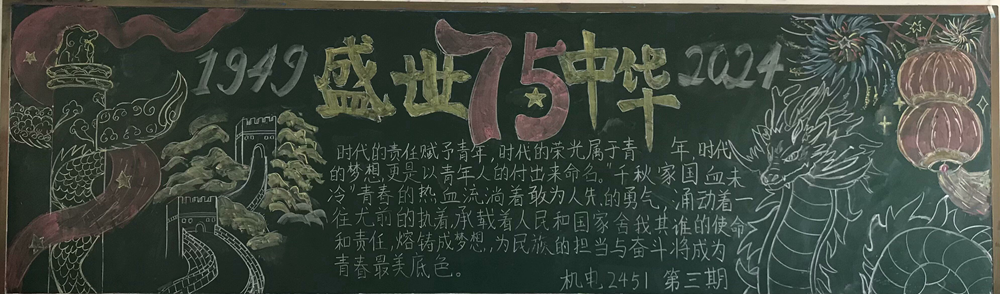 1949 盛世75中华 2024
时代的责任赋予青年,时代的荣光属于青 年 时代
的梦想,更是以青年人的付出来命名。“千秋家国血未
冷”青春的热血流淌着敢为人先,的勇气、涌动着一
往尤前的执着,承载着人民和国家舍我其谁的使命
和责任,熔铸成梦想,为民族的担当与奋斗将成为
青春最美底色。
机电2451 第三期